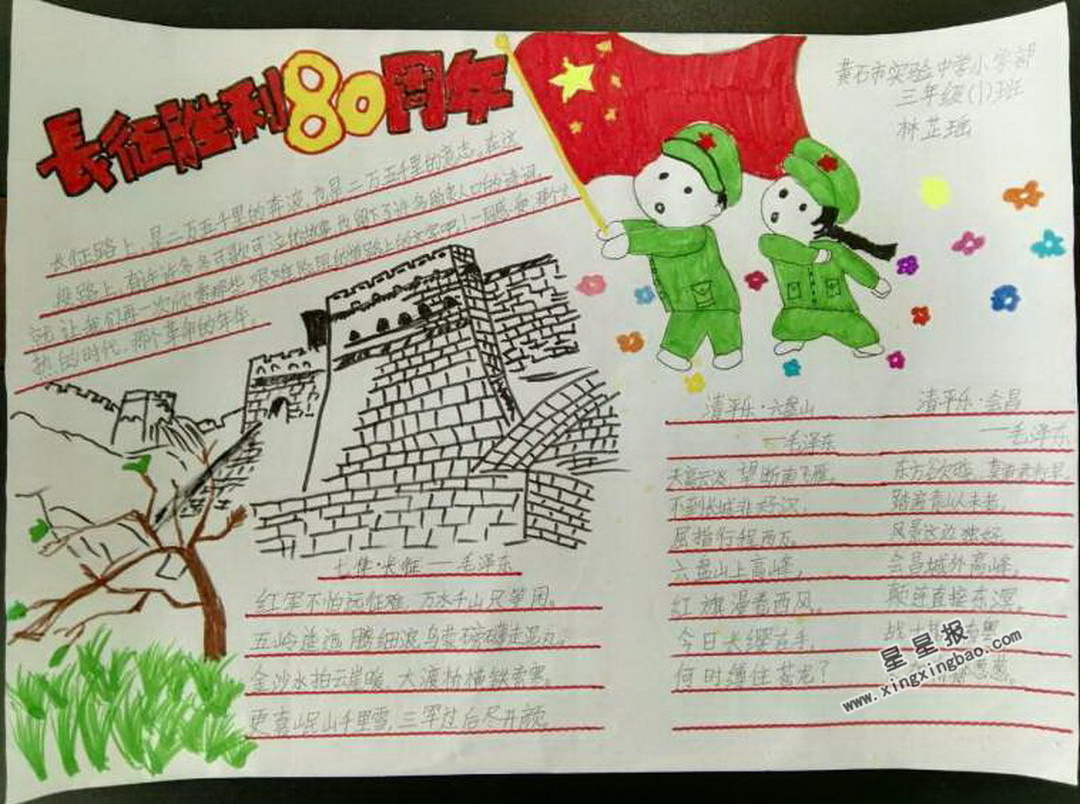 长征胜利80周年
黄石市实验中学小学部
三年级(1)班
林芷瑶
长征路上,是二万五千里的奔波,也是二万五千里的意志。在这
换路上,有许许多多可歌可泣的故事,也留下了许多脍炙人口的诗词,
让我们再一次欣赏那些艰难险阻的 路上的文字吧!一同感受那个火
热的时代,那个革命的年年。
七律·长征——毛泽东
红军不怕远征难,万水千山只等闲。
五岭逶迤腾细浪,乌蒙磅礴走泥丸。
金沙水拍云崖暖,大渡桥横铁索寒。
更喜岷山千里雪,三军过后尽开颜。
清平乐·六盘山
——毛泽东
天高云淡,望断南飞雁。
不到长城非好汉,
屈指行程两万。
六盘山上高峰,
红旗漫卷西风。
今日长缨在手,
何时缚住苍龙?
清平乐·会昌
——毛泽东
东方欲晓,莫道君行早。
踏遍青山人未老,
风景这边独好。
会昌城外高峰,
颠连直接东溟。
战士
葱葱。
星星报
www.xingxingbao.com